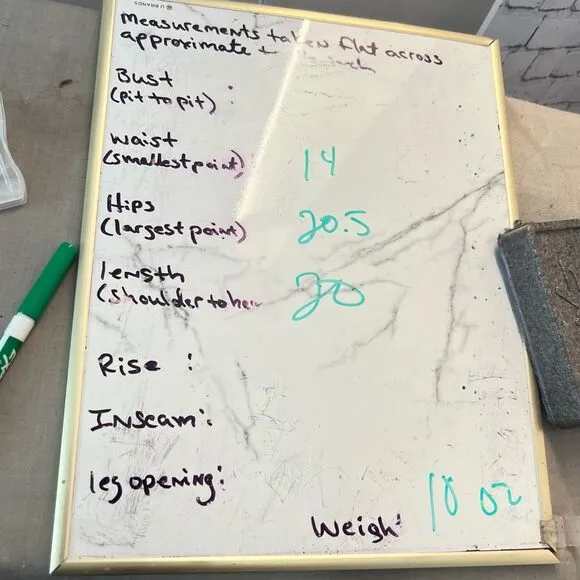 U BRANDS
Measurements taken flat across
approximate
Bust
(Pit to pit)
Waist
(smallest point)
14
Hips
(largest point)
20.5
length
(shoulder to
20
Rise :
Inseam:
leg opening:
Weigh:
10 oz